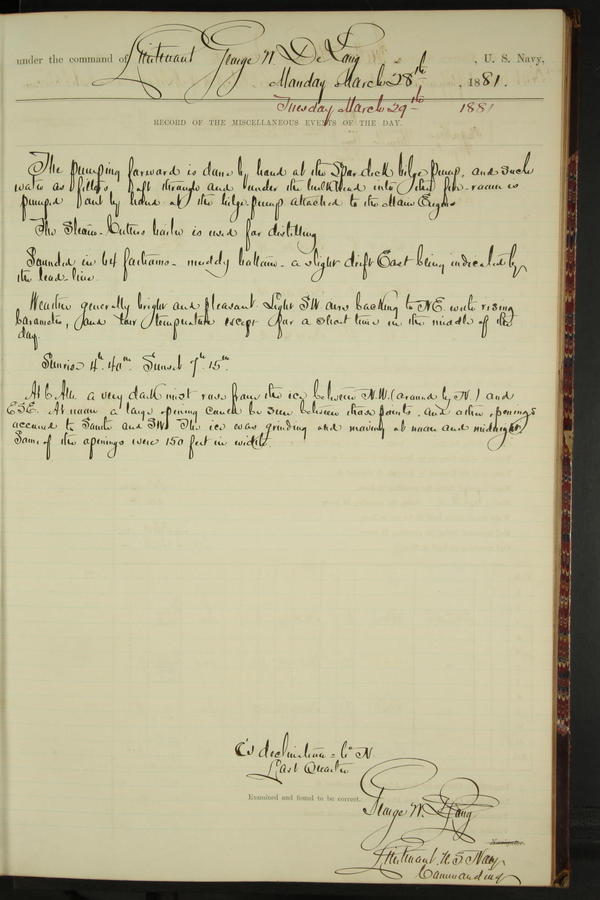 under the command of Lieutenant George W. De Long , U. S. Navy,
Monday March 28th , 1881.
Tuesday March 29th 1881
RECORD OF THE MISCELLANEOUS EVENTS OF THE DAY.
The pumping forward is done by hand at the Spar deck bilge pump, and such
water as filters aft through and under the bulkhead into the fire-room is
pumped out by hand at the bilge pump attached to the Main Engine
The Steam-Cutters boiler is used for distilling
Sounded in 64 fathoms - muddy bottom - a slight drift East being indicated by
the lead-line.
Weather generally bright and pleasant. Light SW airs backing to NE. with rising
barometer, and low temperature except for a short time in the middle of the
day.
Sunrise 4h. 40m. Sunset 7h. 15m.
At 6 AM. a very dark mist rose from the ice between N.W. (around by N.) and
ESE. At noon a large opening could be seen between those points. and other openings
occurred to South and SW. The ice was grinding and moving at noon and midnight.
Some of the openings were 150 feet in width.
declination = 6° N.
Last Quarter
Examined and found to be correct.
George W. De Long
Navigator.
Lieutenant U.S Navy
Commanding